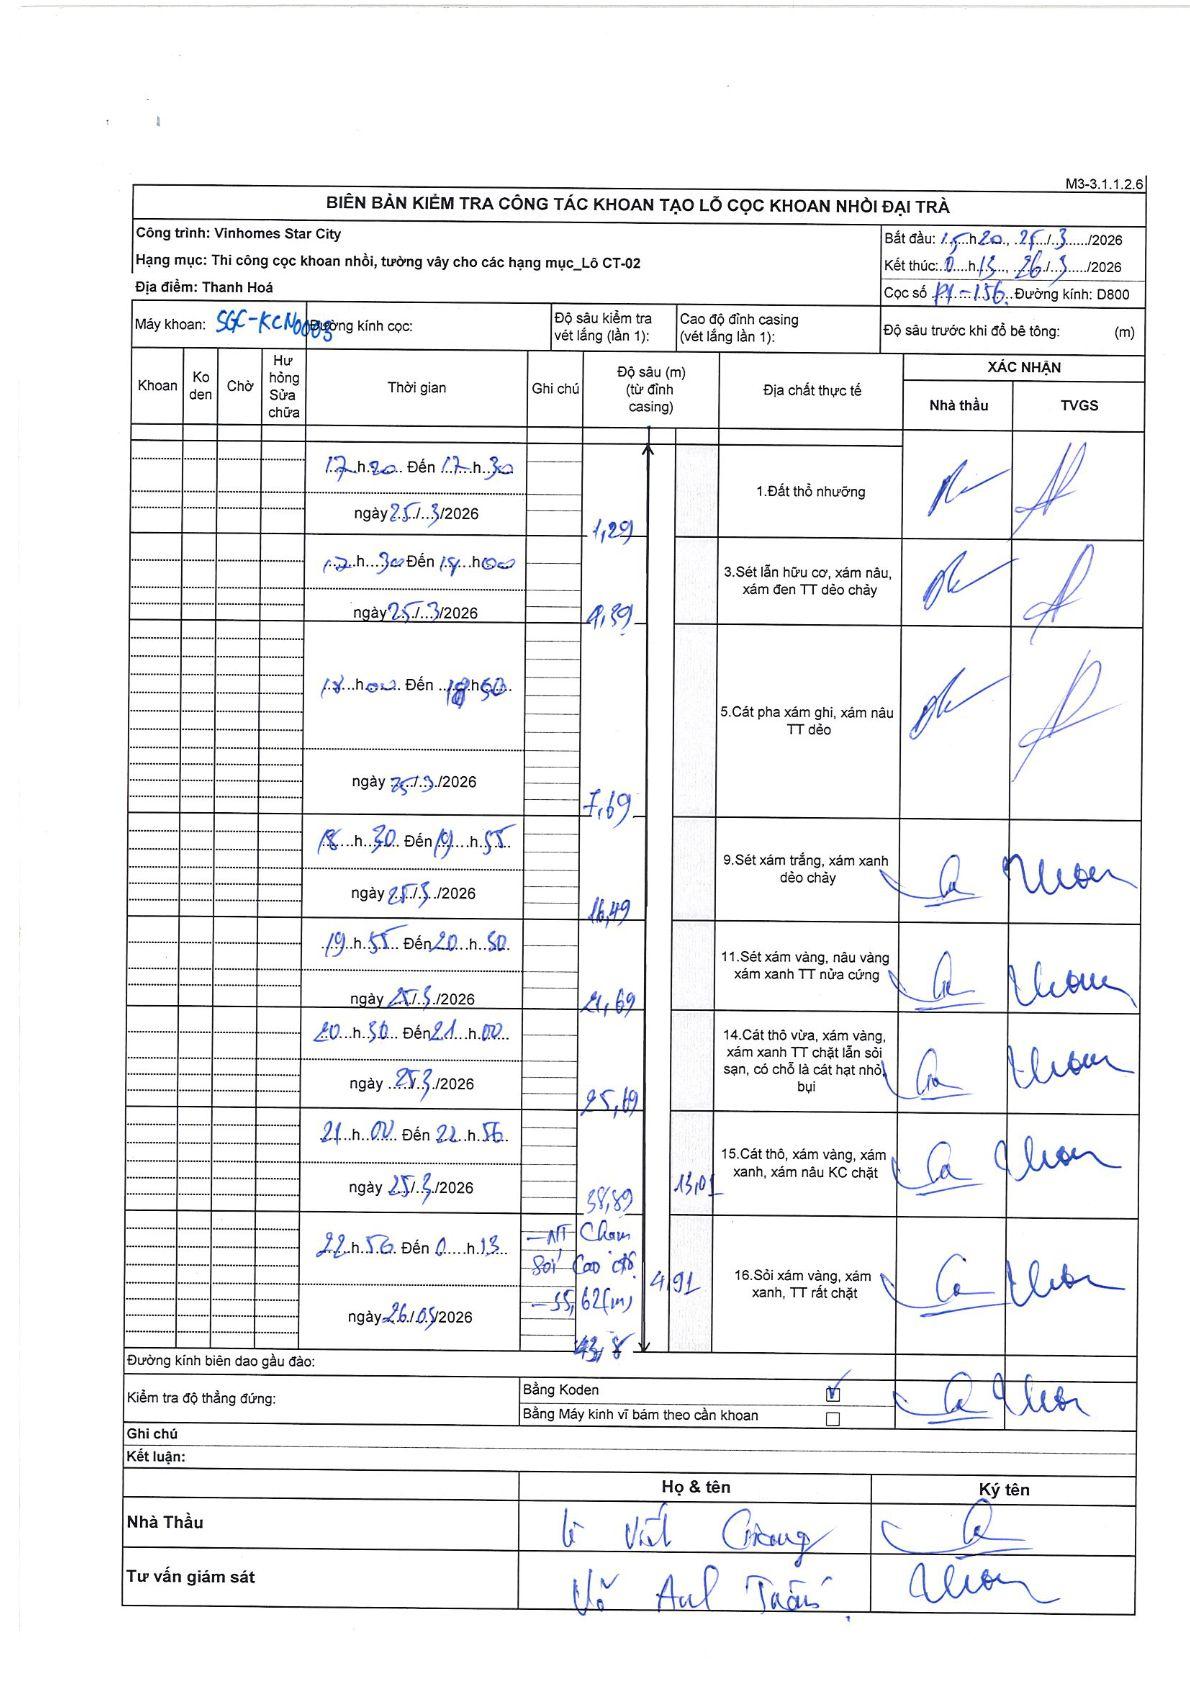 M3-3.1.1.2.6
BIÊN BẢN KIỂM TRA CÔNG TÁC KHOAN TẠO LỖ CỌC KHOAN NHỒI ĐẠI TRÀ
Công trình: Vinhomes Star City
Hạng mục: Thi công cọc khoan nhồi, tường vây cho các hạng mục_Lô CT-02
Địa điểm: Thanh Hoá
Bắt đầu: h20, 25/3/2026
Kết thúc: 0h13, 26/3/2026
Cọc số P1-156 Đường kính: D800
Máy khoan: SGC-KCN0003
Đường kính cọc:
Độ sâu kiểm tra vét lắng (lần 1):
Cao độ đỉnh casing (vét lắng lần 1):
Độ sâu trước khi đổ bê tông: (m)
Khoan
Ko den
Chờ
Hư hỏng Sửa chữa
Thời gian
Ghi chú
Độ sâu (m) (từ đỉnh casing)
Địa chất thực tế
XÁC NHẬN
Nhà thầu
TVGS
17h20 Đến 17h30
ngày 25/3/2026
1,29
1.Đất thổ nhưỡng
17h30 Đến 18h00
ngày 25/3/2026
3.Sét lẫn hữu cơ, xám nâu,
xám đen TT dẻo chảy
18h00 Đến 18h
ngày 25/3/2026
7,69
5.Cát pha xám ghi, xám nâu
TT dẻo
18h30 Đến 19h55
ngày 25/3/2026
16,49
9.Sét xám trắng, xám xanh
dẻo chảy
19h55 Đến 20h30
ngày 25/3/2026
21,69
11.Sét xám vàng, nâu vàng
xám xanh TT nửa cứng
20h30 Đến 21h00
ngày 25/3/2026
25,69
14.Cát thô vừa, xám vàng,
xám xanh TT chặt lẫn sỏi
sạn, có chỗ là cát hạt nhỏ,
bụi
21h00 Đến 22h56
ngày 25/3/2026
38,89
13,01
15.Cát thô, xám vàng, xám
xanh, xám nâu KC chặt
22h56 Đến 0h13
ngày 26/03/2026
-NT Chạm
Sỏi Cao độ
-35,62(m)
43,8
4,91
16.Sỏi xám vàng, xám
xanh, TT rất chặt
Đường kính biên dao gầu đào:
Kiểm tra độ thẳng đứng:
Bằng Koden
Bằng Máy kinh vĩ bám theo cần khoan
Ghi chú
Kết luận:
Họ & tên
Ký tên
Nhà Thầu
Tư vấn giám sát
Võ Anh Tuấn